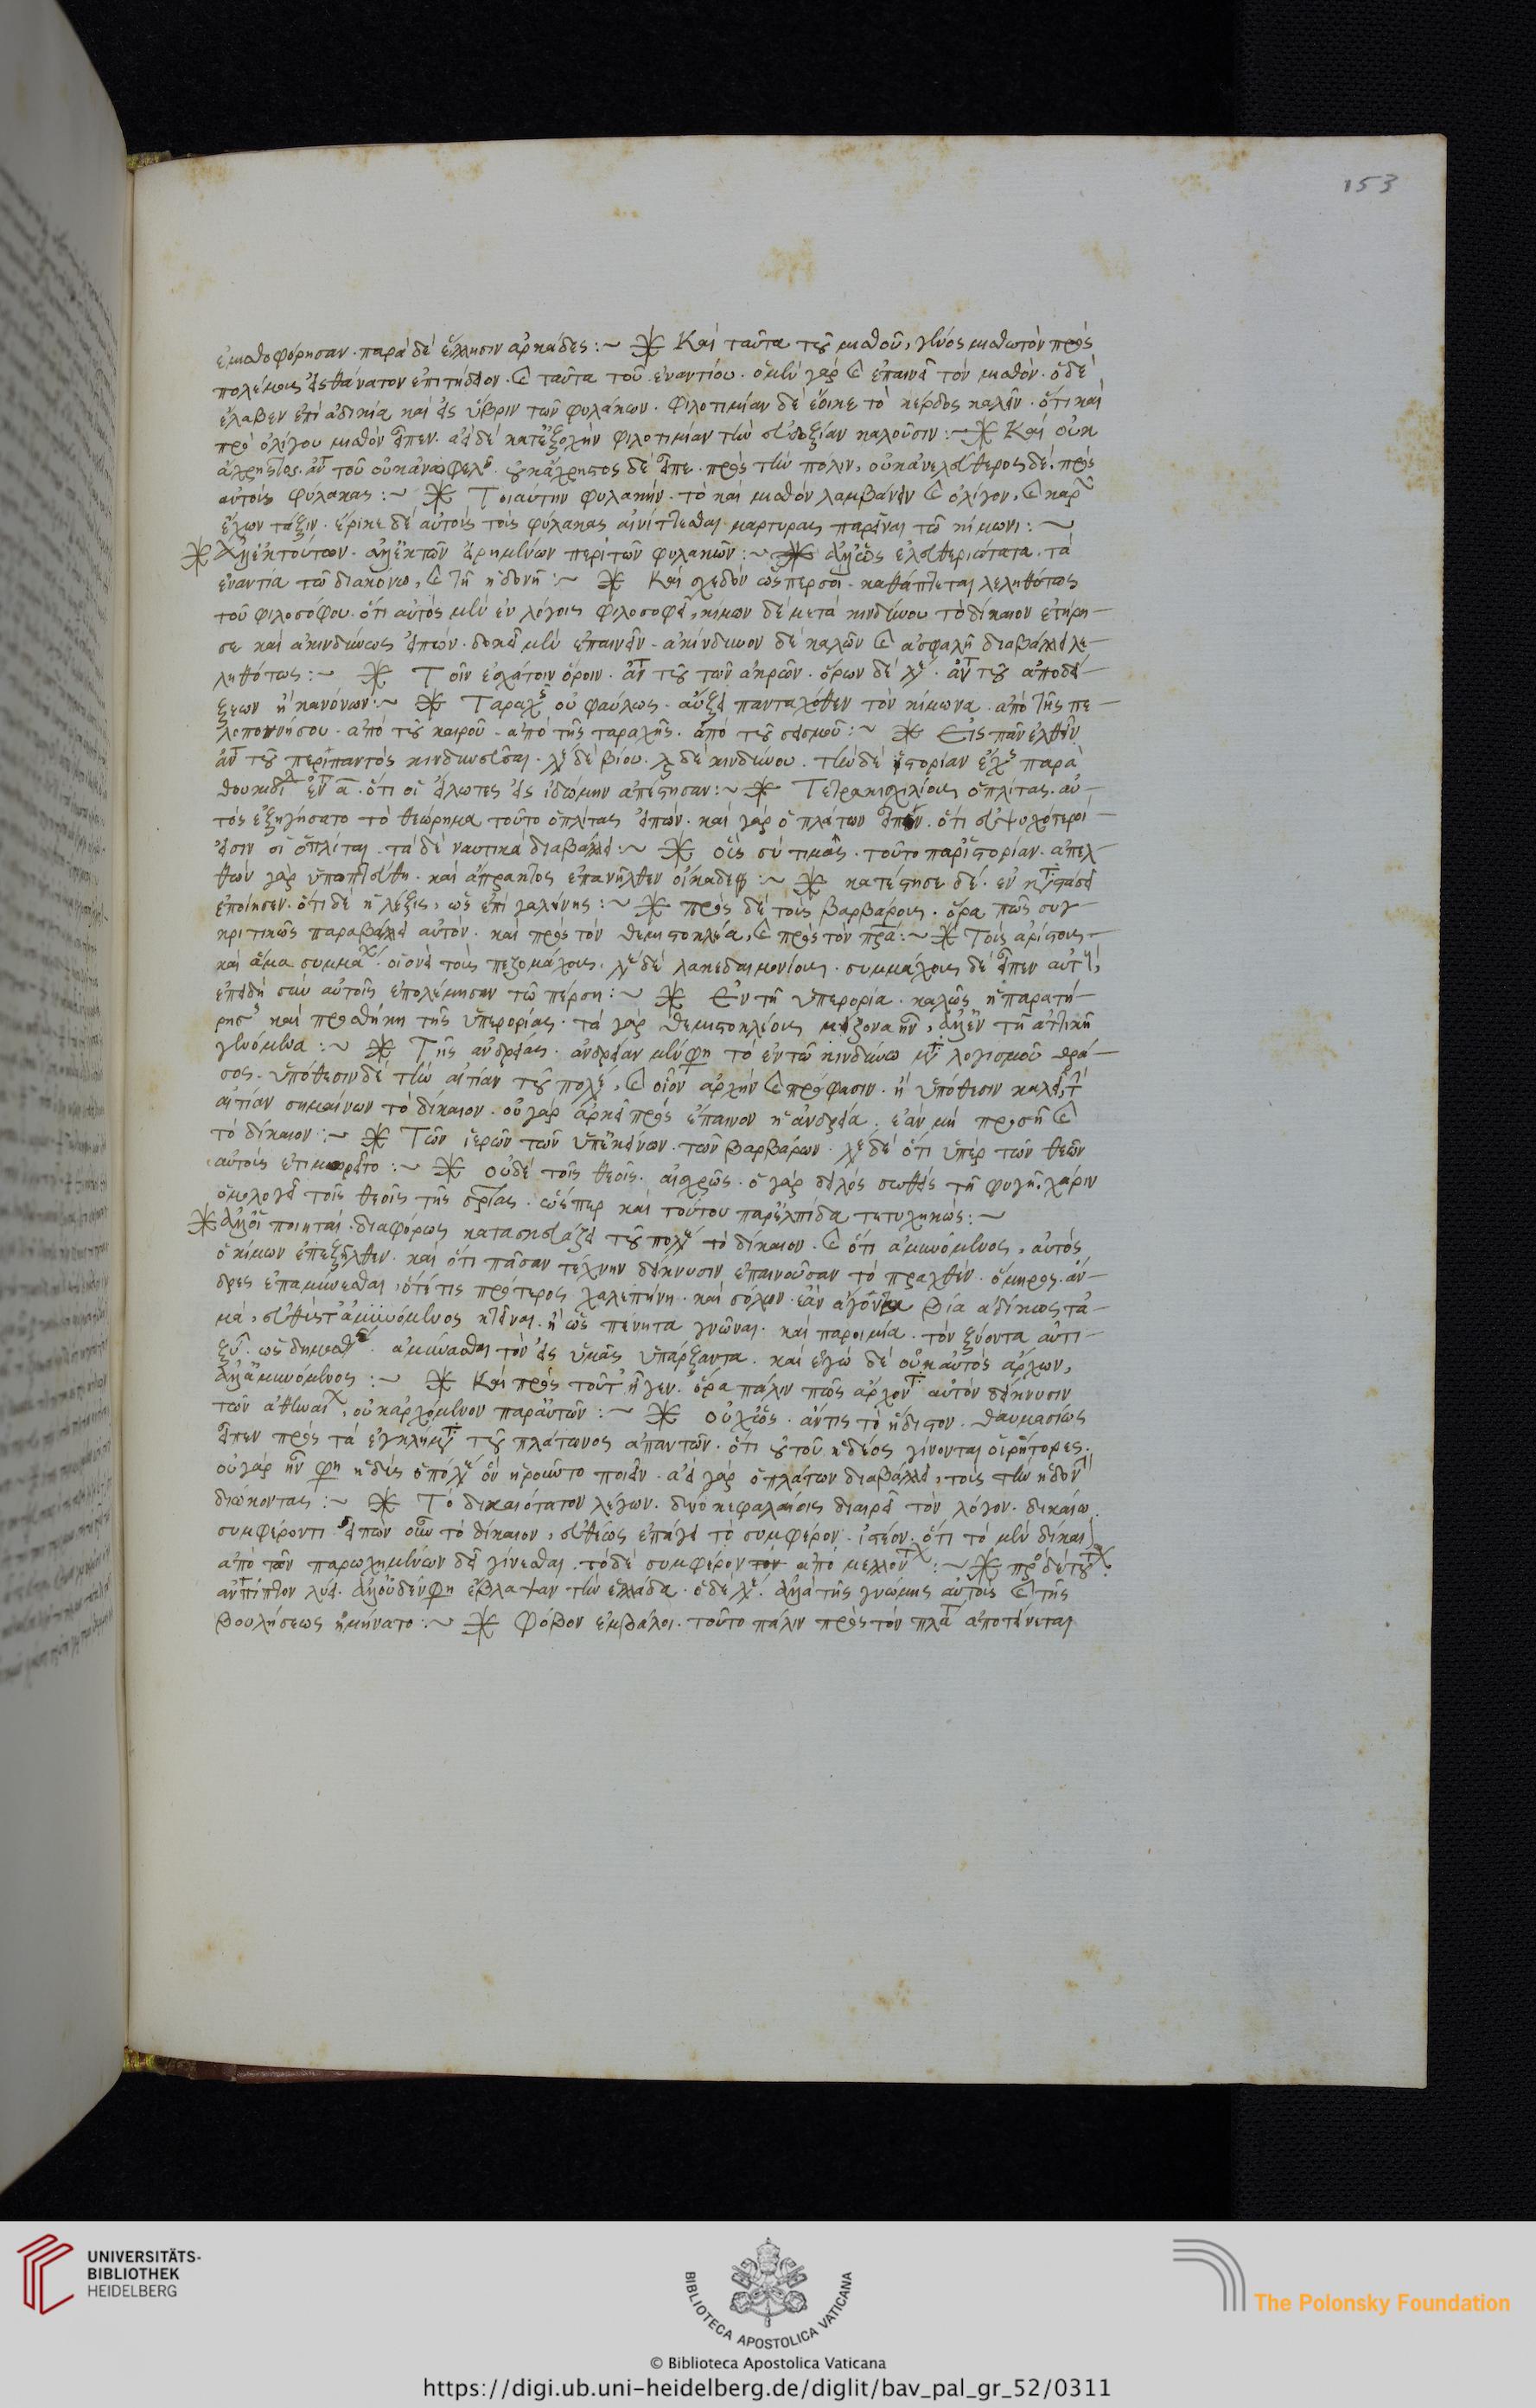 153
ἐμισθοφόρησαν. παρὰ δὲ ἕλλησιν ἀρκάδες :~ Καὶ ταῦτα τοῦ μισθοῦ, γένος μισθωτὸν πρὸς
πολέμους εἰς θάνατον ἐπιτήδειον. ταῦτα τοῦ ἐναντίου. ὁ μὲν γὰρ ἐπαινεῖ τὸν μισθὸν. ὁ δὲ
ἔλαβεν ἐπὶ ἀδικία καὶ εἰς ὕβριν τῶν φυλάκων. Φιλοτιμίαν δὲ ἔοικε τὸ κέρδος καλεῖν. ὅτι καὶ
πρὸ ὀλίγου μισθὸν εἶπεν. ἀεὶ δὲ κατ' ἐξοχὴν φιλοτιμίαν τὴν εὐδοξίαν καλοῦσιν :~ Καὶ οὐκ
πρὸς τὴν πόλιν, οὐκ ἀνελεύθερος δὲ. πρὸς
αὐτοὺς φύλακας :~ Τοιαύτην φυλακήν. τὸ καὶ μισθὸν λαμβάνειν ὀλίγον,
ἔχων τάξιν. ἔοικε δὲ αὐτοὺς τοὺς φύλακας αἰνίττεσθαι μάρτυρας παρεῖναι τῶ κίμωνι :~
Ἀλλ' ἐκ τούτων. ἀλλ' ἐκ τῶν εἰρημένων περὶ τῶν φυλακῶν :~ ἀλλ' ὡς ἐλευθεριώτατα. τὰ
ἐναντία τῶ διακόνω, τῆ ἡδονῆ :~ Καὶ σχεδὸν ὥσπερ σοὶ. καθάπτεται λεληθότως
τοῦ φιλοσόφου. ὅτι αὐτὸς μὲν ἐν λόγοις φιλοσοφεῖ, κίμων δὲ μετὰ κινδύνου τὸ δίκαιον ἐτήρη-
σε καὶ ἀκινδύνως εἰπών. δοκεῖ μὲν ἐπαινεῖν. ἀκίνδυνον δὲ καλῶν ἀσφαλῆ διαβάλλει λε-
ληθότως :~ Τοῖν ἐσχάτοιν ὅροιν. ἀντὶ τοῦ τῶν ἄκρων. ὅρων δὲ λέγει. ἀντὶ τοῦ ἀποδεί-
ξεων ἢ κανόνων :~ Ταραχῆς οὐ φαύλως. αὔξει πανταχόθεν τὸν κίμωνα. ἀπὸ τῆς πε-
λοποννήσου. ἀπὸ τοῦ καιροῦ. ἀπὸ τῆς ταραχῆς. ἀπὸ τοῦ σεισμοῦ :~ Εἰς πᾶν ἐλθεῖν
ἀντὶ τοῦ περὶ παντὸς κινδυνεῦσαι. τὴν δὲ ἱστορίαν ἔχεις παρὰ
θουκυδίδη ἐν τῆ α. ὅτι οἱ εἵλωτες εἰς ἰθώμην ἀπέστησαν :~ Τετρακισχιλίους ὁπλίτας. αὐ-
τὸς ἐξηγήσατο τὸ θεώρημα τοῦτο ὁπλίτας εἰπών. καὶ γὰρ ὁ πλάτων εἶπεν. ὅτι εὐψυχότεροί
εἰσιν οἱ ὁπλῖται. τὰ δὲ ναυτικὰ διαβάλλει :~ οὓς σὺ τιμᾶς. τοῦτο παρ' ἱστορίαν. ἀπελ-
θὼν γὰρ ὑπωπτεύθη. καὶ ἄπρακτος ἐπανῆλθεν οἴκαδε :~ κατέστησε δὲ. ἐν καταστάσει
ἐποίησεν. ὅτι δὲ ἡ λέξις, ὡς ἐπὶ γαλήνης :~ πρὸς δὲ τοὺς βαρβάρους. ὅρα πῶς συγ-
κριτικῶς παραβάλλει αὐτὸν. καὶ πρὸς τὸν θεμιστοκλέα, πρὸς τὸν πατέρα :~ Τοὺς ἀρίστους
καὶ ἅμα συμμάχους. οἱονεὶ τοὺς πεζομάχους. λέγει δὲ λακεδαιμονίους. συμμάχους δὲ εἶπεν αὐτοὺς,
ἐπειδὴ σὺν αὐτοῖς ἐπολέμησαν τῶ πέρση :~ Ἐν τῆ ὑπερορία. καλῶς ἡ παρατή-
ρησις καὶ προσθήκη τῆς ὑπερορίας. τὰ γὰρ θεμιστοκλέους μείζονα ἦν, ἀλλ' ἐν τῆ ἀττικῆ
γενόμενα :~ Τῆς ἀνδρείας. ἀνδρείαν μέν φησι τὸ ἐν τῶ κινδύνω μετὰ λογισμοῦ θρά-
σος. ὑπόθεσιν δὲ τὴν αἰτίαν τοῦ πολέμου, οἷον ἀρχὴν πρόφασιν. ἢ ὑπόθεσιν καλεῖ τὴν
αἰτίαν σημαίνων τὸ δίκαιον. οὐ γὰρ ἀρκεῖ πρὸς ἔπαινον ἡ ἀνδρεία. ἐὰν μὴ προσῆ
τὸ δίκαιον :~ Τῶν ἱερῶν τῶν ὑπ' ἐκείνων. τῶν βαρβάρων. λέγει δὲ ὅτι ὑπὲρ τῶν θεῶν
αὐτοὺς ἐτιμωρεῖτο :~ οὐδὲ τοῖς θεοῖς. αἰσχρῶς. ὁ γὰρ δειλὸς σωθεὶς τῆ φυγῆ. χάριν
ὁμολογεῖ τοῖς θεοῖς τῆς σωτηρίας. ὥσπερ καὶ τούτου παρ' ἐλπίδα τετυχηκώς :~
Ἀλλ' οἱ ποιηταὶ. διαφόρως κατασκευάζει τοῦ πολέμου τὸ δίκαιον. ὅτι ἀμυνόμενος, αὐτὸς
ὁ κίμων ἐπεξῆλθεν. καὶ ὅτι πᾶσαν τέχνην δείκνυσιν ἐπαινοῦσαν τὸ πραχθέν. ὅμηρος. ἄν-
δρες ἐπαμύνεσθαι, ὅτε τις πρότερος χαλεπήνη. καὶ σόλων. ἐὰν ἄγοντα βία ἀδίκως τὰ-
μὰ, εὐθὺς ἀμυνόμενος κτεῖναι. ἢ ὡς πένητα γνῶναι. καὶ παροιμία. τὸν ξύοντα ἀντι-
ξύειν. ὡς δημοσθένης. ἀμύνασθαι τὸν εἰς ὑμᾶς ὑπάρξαντα. καὶ ἐγὼ δὲ οὐκ αὐτὸς ἄρχων,
ἀλλ' ἀμυνόμενος :~ Καὶ πρὸς τοῦτ' ἦγεν. ὅρα πάλιν πῶς ἄρχοντα αὐτὸν δείκνυσιν
τῶν ἀθηναίων, οὐκ ἀρχόμενον παρ' αὐτῶν :~ οὐχ ὡς. ἄν τις τὸ ἥδιστον. θαυμασίως
εἶπεν πρὸς τὰ ἐγκλήματα τοῦ πλάτωνος ἀπαντῶν. ὅτι τοῦ ἡδέος γίνονται οἱ ῥήτορες.
οὐ γὰρ ἦν φησι ἡδὺς ὁ πόλεμος ὃν ᾑροῦντο ποιεῖν. ἀεὶ γὰρ ὁ πλάτων διαβάλλει, τοὺς τὴν ἡδονὴν
διώκοντας :~ Τὸ δικαιότατον λέγων. δυσὶ κεφαλαίοις διαιρεῖ τὸν λόγον. δικαίω
συμφέροντι. εἰπὼν οὖν τὸ δίκαιον, εὐθέως ἐπάγει τὸ συμφέρον. ἰστέον. ὅτι τὸ μὲν δίκαιον
ἀπὸ τῶν παρωχημένων δεῖ γίνεσθαι. τὸ δὲ συμφέρον ἀπὸ μελλόντων :~ πρὸ δὲ τούτων.
ἀντιπίπτον λύει. ἀλλ' οὐδὲν φησι ἔβλαψαν τὴν ἑλλάδα. ὁ δὲ λέγει. ἀλλὰ τῆς γνώμης αὐτοὺς τῆς
βουλήσεως ἠμύνατο :~ Φόβον ἐμβάλοι. τοῦτο πάλιν πρὸς τὸν πλάτωνα ἀποτείνεται
UNIVERSITÄTS-
BIBLIOTHEK
HEIDELBERG
BIBLIOTECA APOSTOLICA VATICANA
The Polonsky Foundation
© Biblioteca Apostolica Vaticana
https://digi.ub.uni-heidelberg.de/diglit/bav_pal_gr_52/0311